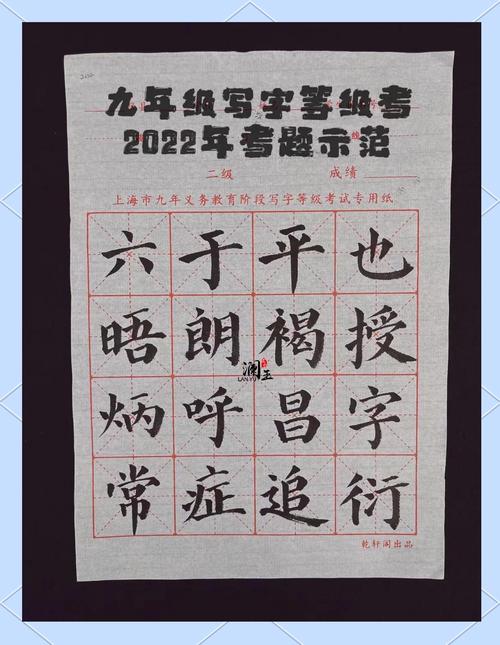 九年级写字等级考
2022年考题示范
二级 成绩
上海市九年义务教育阶段写字等级考试专用纸
六于平也
晤朗褐授
炳呼昌字
常症追衍
澜玉
LAN YU
乾轩阁出品